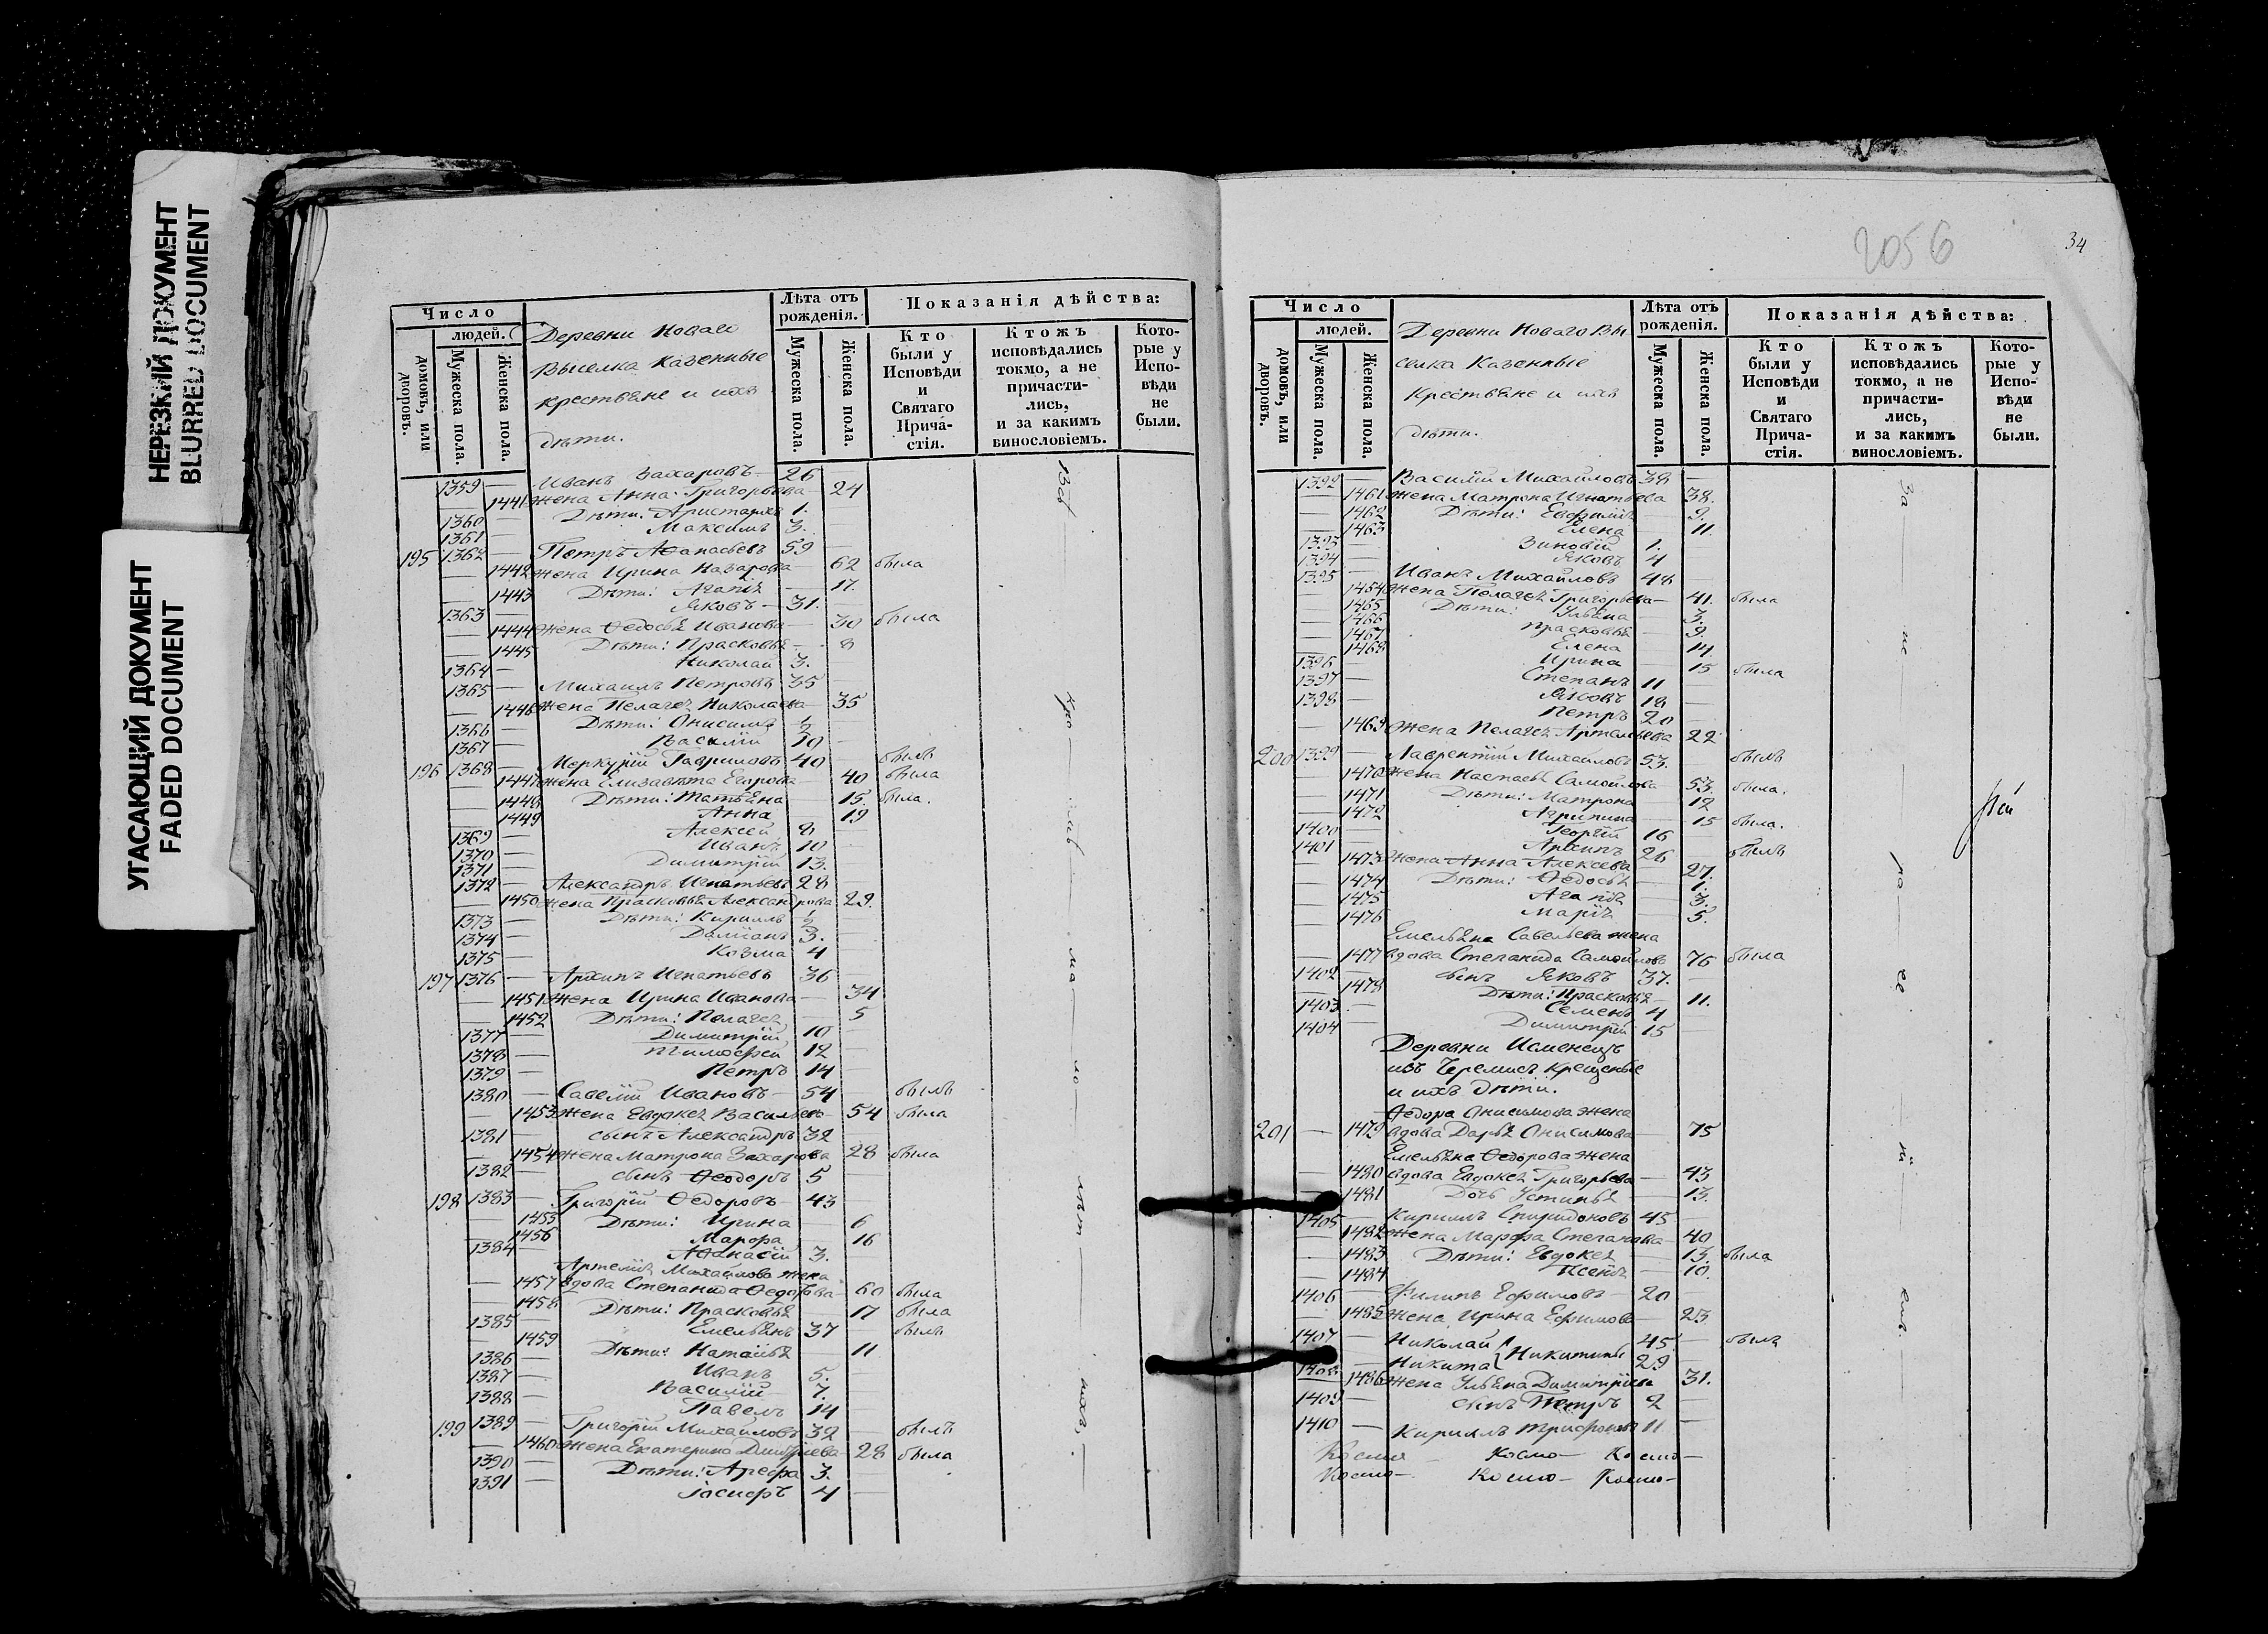 НЕРЕЗКИЙ ДОКУМЕНТ
BLURRED DOCUMENT
УГАСАЮЩИЙ ДОКУМЕНТ
FADED DOCUMENT
Число
людей.
домовъ, или дворовъ.
Мужеска пола.
Женска пола.
Деревни Новаго
Выселка Казенные
крестьяне и ихъ
дѣти.
Лѣта отъ рожденія.
Мужеска пола.
Женска пола.
Показанія дѣйства:
Кто были у Исповѣди и Святаго Прича-стія.
Ктожъ исповѣдались токмо, а не причасти-лись, и за какимъ винословіемъ.
Кото-рые у Испо-вѣди не были.
1359 — Иванъ Захаровъ — 26 —
— 1441 жена Анна Григорьева — 24
1360 — Дѣти: Аристархъ 1.
1361 — Максимъ 3.
195 1362 — Петръ Аѳанасьевъ 59 —
— 1442 жена Ирина Назарова — 62 была
— 1443 Дѣти: Агапія — 17.
1363 — Яковъ — 31. —
— 1444 жена Ѳедосья Иванова — 30 была
— 1445 Дѣти: Прасковья — 8
1364 — Николай 3.
1365 — Михаилъ Петровъ 35 —
— 1446 жена Пелагея Николаева — 35
1366 — Дѣти: Онисимъ ½
1367 — Василій 10 —
196 1368 — Меркурій Гавриловъ 40 — былъ
— 1447 жена Елизавѣта Егорова — 40 была
— 1448 Дѣти: Татьяна — 15. была.
— 1449 Анна 19
1369 — Алексей 8 —
1370 — Иванъ 10 —
1371 — Димитрій 13. —
1372 — Александръ Игнатьевъ 28 —
— 1450 жена Прасковья Александрова 29.
1373 — Дѣти: Кириллъ ½ —
1374 — Даміанъ 3. —
1375 — Козма 4 —
197 1376 — Архипъ Игнатьевъ 36 —
— 1451 жена Ирина Иванова — 34
— 1452 Дѣти: Пелагея — 5
1377 — Димитрій 10 —
1378 — Тимофей 12 —
1379 — Петръ 14 —
1380 — Савелій Ивановъ — 54 былъ
— 1453 жена Евдокея Васильева — 54 была
1381 — сынъ Александръ 32 —
— 1454 жена Матрона Захарова 28 была
1382 — сынъ Ѳеодоръ 5 —
198 1383 — Григорій Ѳедоровъ — 43 —
— 1455 Дѣти: Ирина — 6
— 1456 Марфа 16
1384 — Аѳанасій 3. —
Артемія Михайлова жена
— 1457 вдова Степанида Ѳедорова — 60 была
— 1458 Дѣти: Прасковья 17 была
1385 — Емельянъ 37 — былъ
— 1459 Дѣти: Наталья — 11
1386 — Иванъ 5. —
1387 — Василій 7. —
1388 — Павелъ 14 —
199 1389 — Григорій Михайловъ 32 — былъ
— 1460 жена Екатерина Димитріева — 28 была
1390 — Дѣти: Арефа 3. —
1391 — 4 —
2056
34
Число
людей.
домовъ, или дворовъ.
Мужеска пола.
Женска пола.
Деревни Новаго Вы
селка Казенные
Крестьяне и ихъ
дѣти.
Лѣта отъ рожденія.
Мужеска пола.
Женска пола.
Показанія дѣйства:
Кто были у Исповѣди и Святаго Прича-стія.
Ктожъ исповѣдались токмо, а не причасти-лись, и за какимъ винословіемъ.
Кото-рые у Испо-вѣди не были.
1392 — Василій Михайловъ 38 —
— 1461 жена Матрона Игнатьева 38.
— 1462 Дѣти: Евфимія — 9.
— 1463 Елена — 11.
1393 — Зиновій 1. —
1394 — Яковъ 4
1395 — Иванъ Михайловъ 48 —
— 1454 жена Пелагея Григорьева — 41. была
— 1465 Дѣти: Ульяна — 3.
— 1466 Прасковья — 9.
— 1467 Елена — 14.
— 1468 Ирина — 15 была
1396 — Степанъ 11 —
1397 — Яковъ 18 —
1398 — Петръ 20 —
— 1469 жена Пелагея Артемьева 22
200 1399 — Лаврентій Михайловъ 53. былъ
— 1470 жена Настасья Самойлова 53. была.
— 1471 Дѣти: Матрона — 12
— 1472 Агрипина — 15 была.
1400 — Георгій 16 —
1401 — Архипъ 26 — былъ
— 1473 жена Анна Алексеева — 27.
— 1474 Дѣти: Ѳедосья — 1.
— 1475 Агапія — 3.
— 1476 Марія — 5.
Емельяна Савельева жена
— 1477 вдова Степанида Самойлова 76 была
1402 — сынъ Яковъ 37. —
— 1478 Дѣти: Прасковья — 11.
1403 — Семенъ 4
1404 — Димитрій 15
Деревни Исменецъ
изъ Черемисъ крещеные
и ихъ дѣти.
Ѳедора Онисимова жена
201 — 1479 вдова Дарья Онисимова — 75
Емельяна Ѳедорова жена
— 1480 вдова Евдокея Григорьева — 43
— 1481 Дочь Устинья — 13.
1405 — Кириллъ Спиридоновъ 45 —
— 1482 жена Марфа Степанова — 40
— 1483 Дѣти: Евдокея — 13. была
— 1484 Ксенія — 10.
1406 — Филипъ Ефимовъ — 20 —
— 1485 жена Ирина Ефимова — 23.
1407 — Николай } Никитины 45. — былъ
1408 — Никита } 29
— 1486 жена Ульяна Димитріева 31.
1409 — сынъ Петръ 2 —
1410 — Кириллъ Трифоновъ 11 —